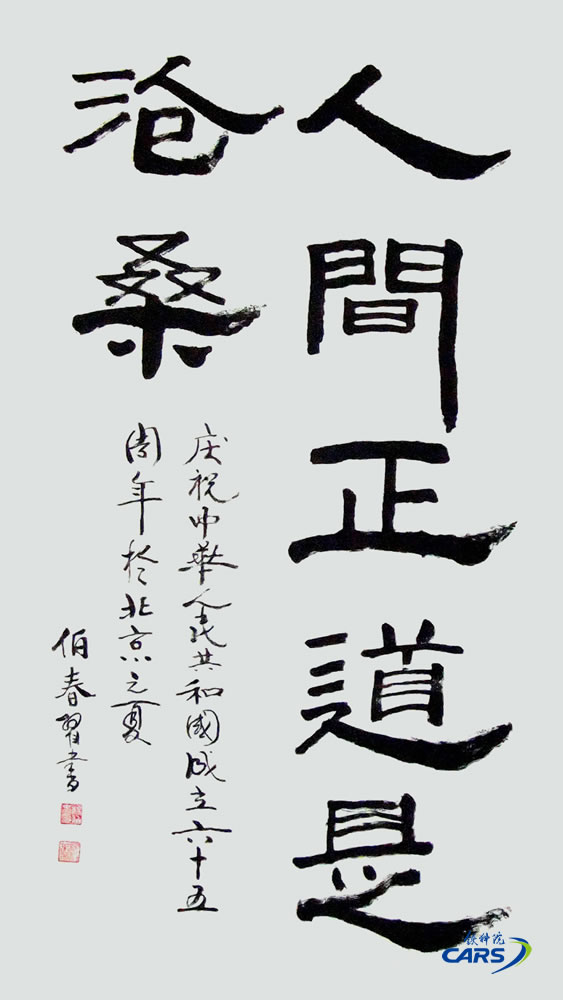 人間正道是
沧桑
庆祝中華人民共和國成立六十五
周年於北京之夏
伯春習書
铁科院
CARS